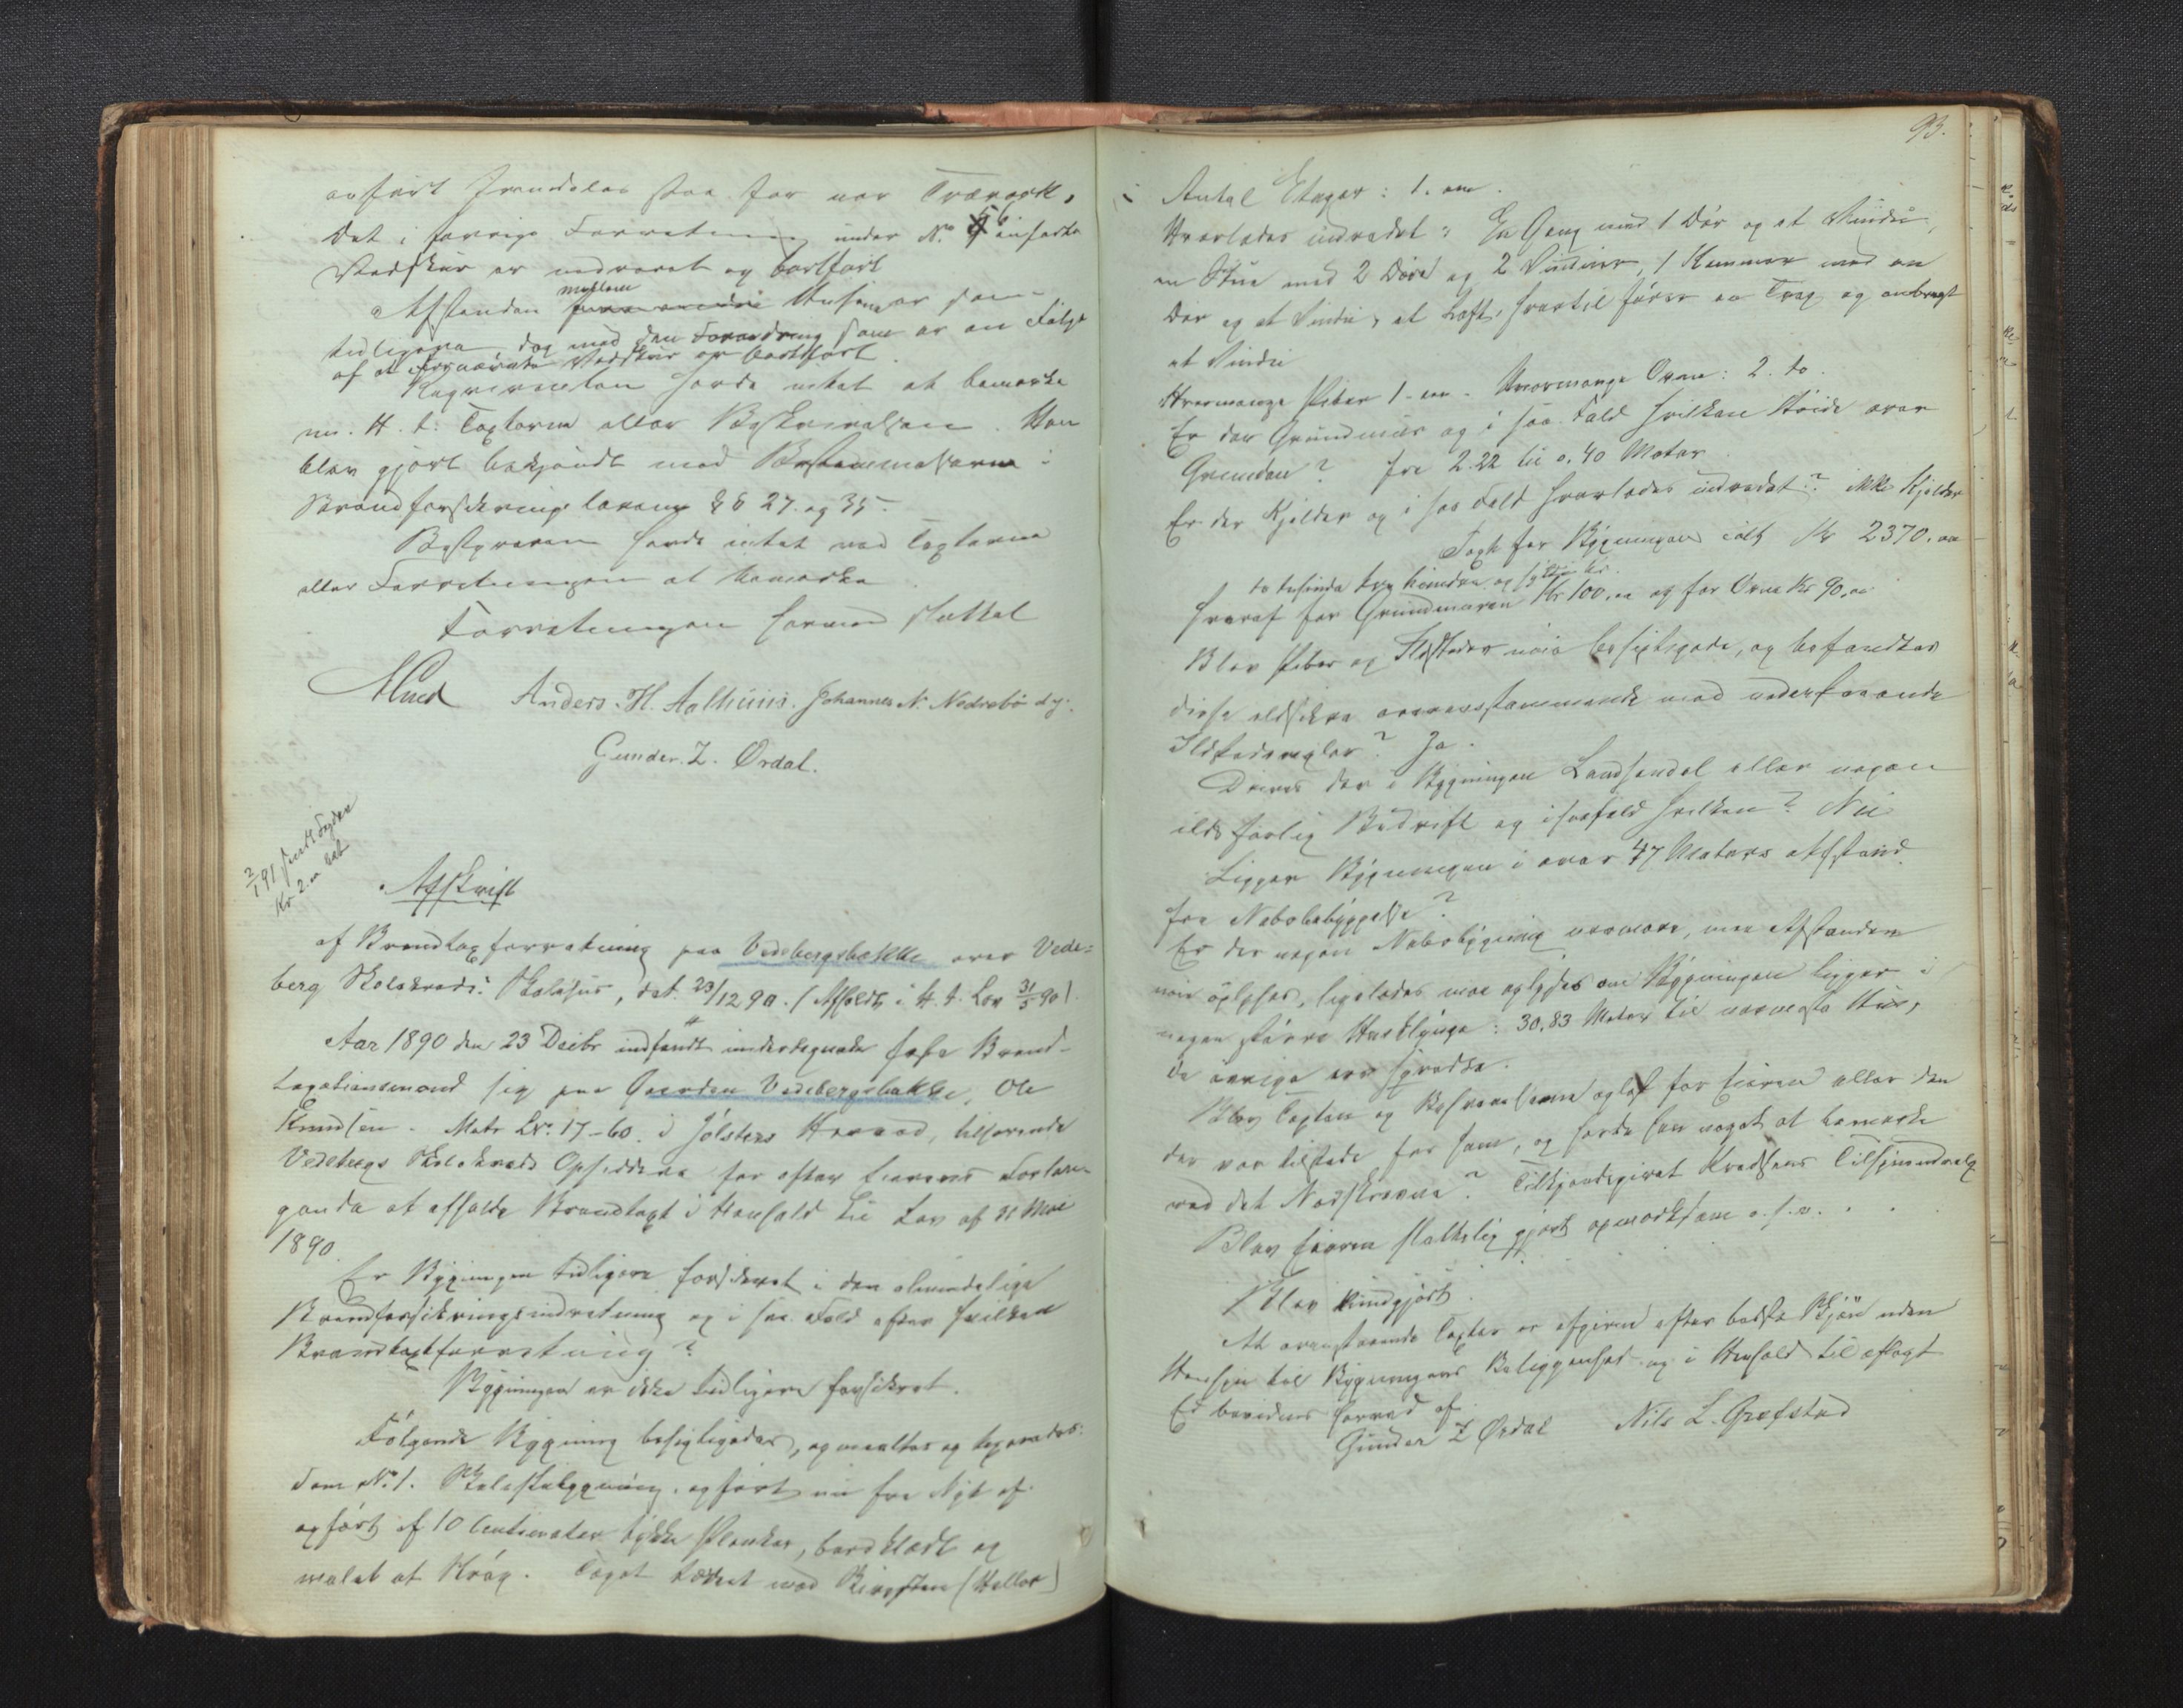 anført Inndeles staa for var Træverk.
Det i forrige Forretning under No. 5 anførte
Vedskur er nedrevet og bortført
Afstanden mellem Husene er som
tidligere dog med den Forandring som er en Følge
af at fornævnte Vedskur er bortført.
Requirenten havde intet at bemærke
m. H. t. Taxterne eller Beskrivelsen. Han
blev gjort bekjendt med Bestemmelserne i
Brandforsikringslovens §§ 27 og 35.
Bestyreren havde intet ved Taxterne
eller Forretningen at bemærke
Forretningen hermed sluttet
Anders. H. Aalhuus. Johannes N. Nedrebö
Gunder. Z. Ordal.
2/1 91
Kr 2.
Afskrift
af Brandtaxforretning paa Vedebergsbakke over Vede-
berg Skolekreds's Skolehus, dat. 23/12 90. (Afholdt i H. t. Lov 31/5 90).
Aar 1890 den 23 Decbr indfandt undertegnede faste Brand-
taxationsmænd sig paa Gaarden Vedebergsbakke, Ole
Knudsen. Matr Lnr. 17-60. i Jölsters Herred, tilhørende
Vedebergs Skolekreds Opsiddere for efter Eierens Forlan-
gende at afholde Brandtaxt i Henhold til Lov af 31 Mai
1890.
Er Bygningen tidligere forsikret i den almindelige
Brandforsikringsindretning og i saa Fald efter hvilken
Brandtaxtforretning?
Bygningen er ikke tidligere forsikret.
Følgende Bygning besigtigedes, opmaaltes og taxeredes:
Som No. 1. Skolestubygning, opført ny fra Nyt af
opført af 10 Centimeter tykke Planker, bordklædt og
malet at Strög. Taget tækket med Skifersten (Heller)
93.
Antal Etager: 1. en.
Hvorledes indredet: En Gang med 1 Dör og et Vindu,
en Stue med 2 Döre og 2 Vinduer, 1 Kammer med en
Dör og et Vindu, et Loft, hvortil fører en Trap og anbragt
et Vindu
Hvormange Piber 1- en. Hvormange Ovne: 2. to.
Er der Grundmur og i saa Fald hvilken Höide over
Grunden? fra 2.22 til 0.40 Meter.
Er der Kjelder og i saa Fald hvorledes indredet? ikke Kjelder
Taxt for Bygningen ialt Kr 2370.
to tusinde tre hundre og sytti Kr.
hvoraf for Grundmuren Kr 100. og for Ovne Kr 90.
Blev Piber og Ildsteder nøie besigtigede, og befandtes
disse ildsikre overensstemmende med vedkommende
Ildstedsregler? Ja.
Drives der i Bygningen Landhandel eller nogen
ildsfarlig Bedrift og i saafald hvilken? Nei
Ligger Bygningen i over 47 Meters Afstand
fra Nabobebyggelse?
Er der nogen Nabobygning nærmere, maa Afstanden
nøie oplyses, ligeledes maa oplyses om Bygningen ligger i
nogen større Husklynge: 30.83 Meter til nærmeste Hus,
de øvrige er spredte.
Blev Taxten og Beskrivelsen oplæst for Eieren eller den
der var tilstede for ham, og havde han noget at bemærke
ved det Nedskrevne? Tilkjendegivet Kredsens Tilsynsudvalg
Blev Eieren skriftlig gjort opmærksom o. s. v. . . .
Blev kundgjort.
At ovenstaaende Taxter er afgivne efter bedste Skjön uden
Hensyn til Bygningens Beliggenhed og i Henhold til aflagt
Ed bevidnes herved af
Gunder Z Ordal Nils L. Grafstad